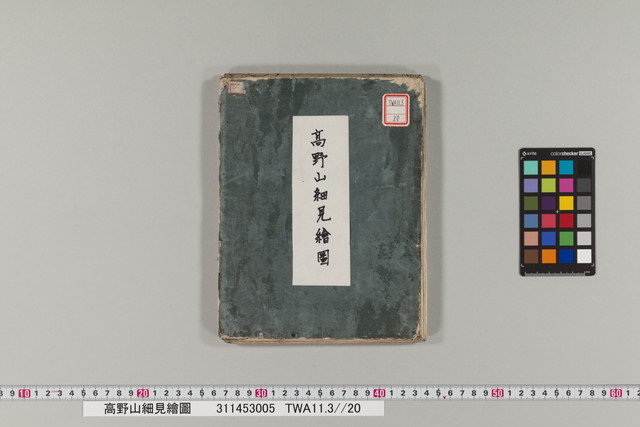 TWA11.3
20
高野山細見繪圖
x-rite
colorchecker CLASSIC
8 9 10 1 2 3 4 5 6 7 8 9 20 1 2 3 4 5 6 7 8 9 30 1 2 3 4 5 6 7 8 9 40 1 2 3 4 5 6 7 8 9 50 1 2 3 4 5 6 7 8 9 60 1
高野山細見繪圖 311453005 TWA11.3//20